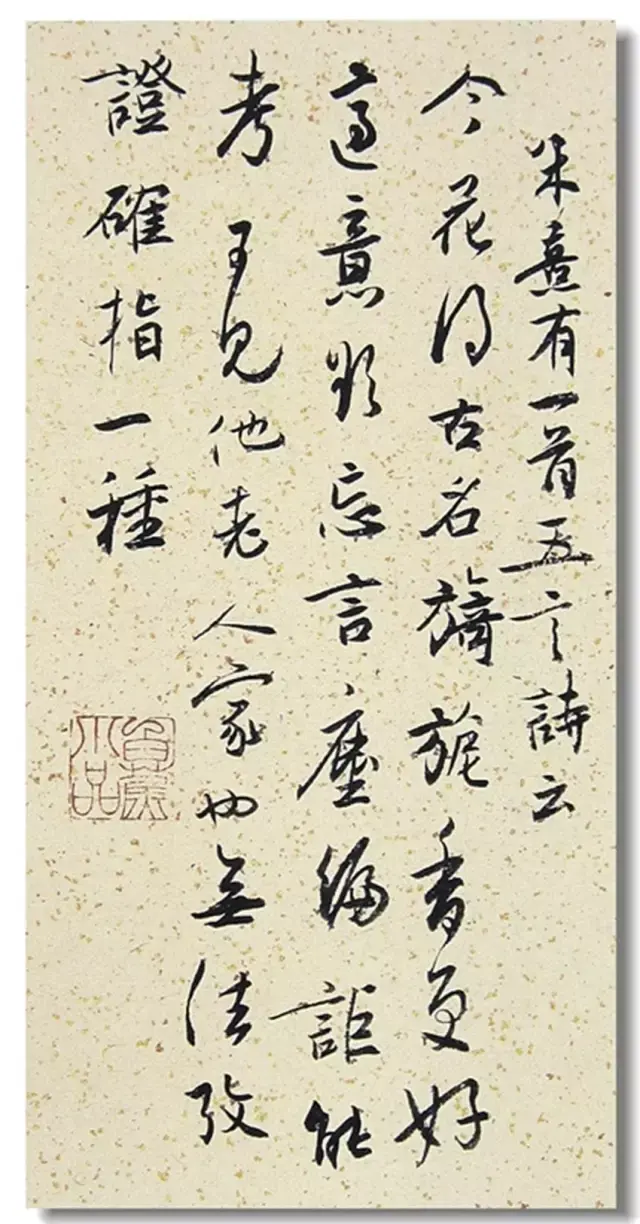 朱熹有一首五言詩云
今花得古名旖旎香更好
適意欲忘言塵編詎能
考可見他老人家也無法攷
證確指一種